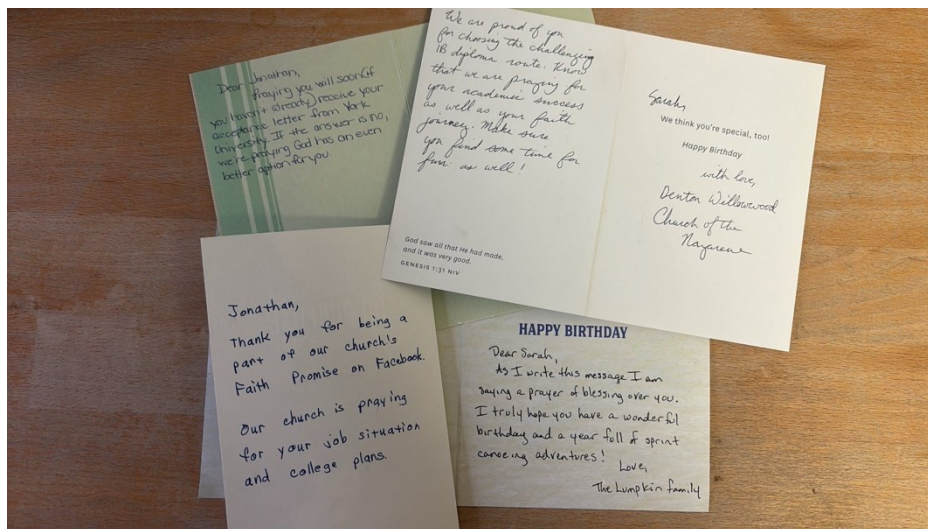 Dear Jonathan,
Praying you will soon (if
you haven't already) receive your
acceptance letter from York
University. If the answer is no,
we're praying God has an even
better option for you.
We are proud of you
for choosing the challenging
IB diploma route. Know
that we are praying for
your academic success
as well as your faith
journey. Make sure
you find some time for
fun as well!
God saw all that He had made,
and it was very good.
GENESIS 1:31 NIV
Sarah,
We think you're special, too!
Happy Birthday
with love,
Denton Willowwood
Church of the
Nazarene
Jonathan,
Thank you for being a
part of our church's
Faith Promise on Facebook.
Our church is praying
for your job situation
and college plans.
HAPPY BIRTHDAY
Dear Sarah,
As I write this message I am
saying a prayer of blessing over you.
I truly hope you have a wonderful
birthday and a year full of sprint
canoeing adventures!
Love,
The Lumpkin family